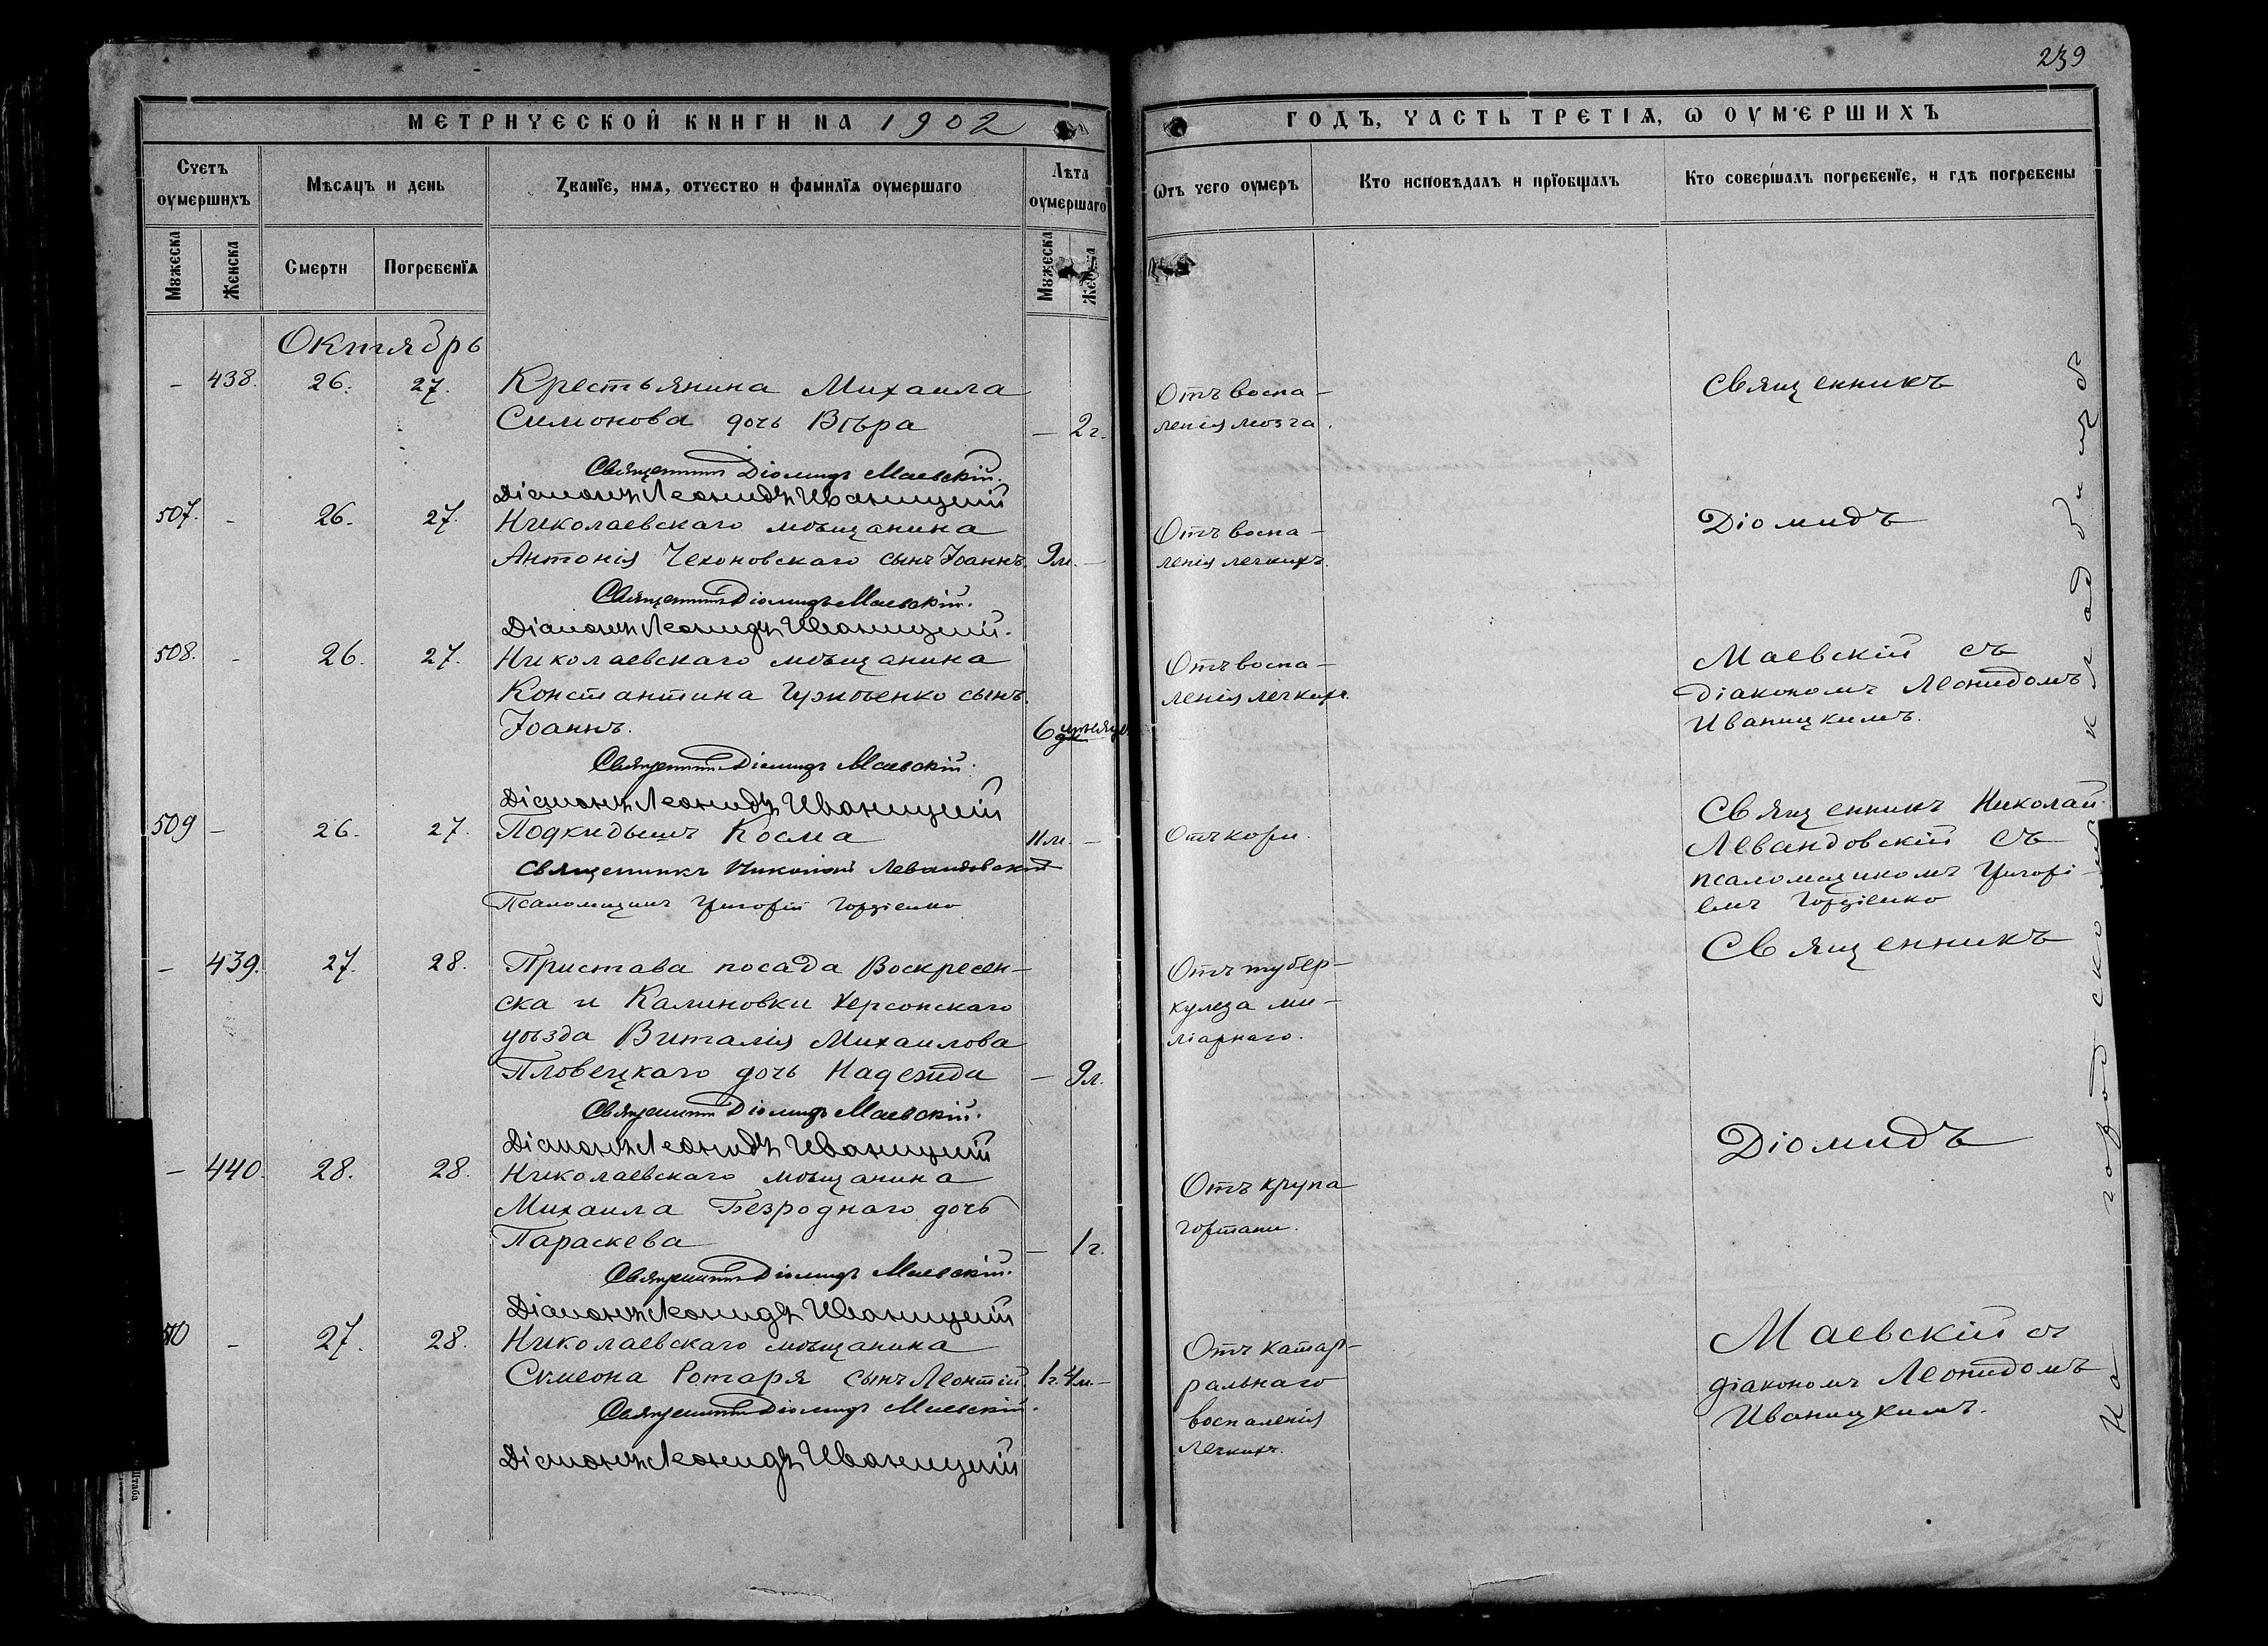 239
МЕТРИЧЕСКОЙ КНИГИ НА 1902
ГОДЪ, ЧАСТЬ ТРЕТІѦ, Ѡ ОУМЕРШИХЪ
Счетъ оумершихъ
Мѣсяцъ и день
Званїе, имѧ, отчество и фамилїѧ оумершаго
Лѣта оумершаго
Ѿтъ чего оумеръ
Кто исповѣдалъ и прїобщалъ
Кто совершалъ погребенїе, и гдѣ погребены
Мꙋжеска
Женска
Смерти
Погребенїѧ
Мꙋжеска
Октябрь
– 438. 26. 27. Крестьянина Михаила
Симонова дочь Вѣра – 2 г.
Отъ воспа-
ленія мозга.
Священникъ
Священникъ Діомидъ Маевскій.
Діаконъ Леонидъ Иваницкій
507. – 26. 27. Николаевскаго мѣщанина
Антонія Чехоновскаго сынъ Іоаннъ. 9 м. –
Отъ воспа-
ленія легкихъ.
Діомидъ
Священникъ Діомидъ Маевскій.
Діаконъ Леонидъ Иваницкій.
508. – 26. 27. Николаевскаго мѣщанина
Константина сынъ
Іоаннъ. 6
Отъ воспа-
ленія легкихъ.
Маевскій съ
діакономъ Леонидомъ
Иваницкимъ.
Священникъ Діомидъ Маевскій.
Діаконъ Леонидъ Иваницкій
509 – 26. 27. Подкидышъ Косма 11 м. –
Отъ кори.
Священникъ Николай
Левандовскій съ
псаломщикомъ Григорі-
емъ Гордіенко
Священникъ Николай Левандовскій
Псаломщикъ Григорій Гордіенко
– 439. 27. 28. Пристава посада Воскресен-
ска и Калиновки Херсонскаго
уѣзда Виталія Михаилова
Пловецкаго дочь Надежда – 9 л.
Отъ тубер-
кулеза ми-
ліарнаго.
Священникъ
Священникъ Діомидъ Маевскій.
Діаконъ Леонидъ Иваницкій
– 440. 28. 28. Николаевскаго мѣщанина
Михаила Безроднаго дочь
Параскева – 1 г.
Отъ крупа
гортани.
Діомидъ
Священникъ Діомидъ Маевскій.
Діаконъ Леонидъ Иваницкій
510 – 27. 28. Николаевскаго мѣщанина
Симеона Ротаря сынъ Леонтій. 1 г. 4 м. –
Отъ катар-
ральнаго
воспаленія
легкихъ.
Маевскій съ
діакономъ Леонидомъ
Иваницкимъ.
Священникъ Діомидъ Маевскій.
Діаконъ Леонидъ Иваницкій
На городскомъ кладбищѣ